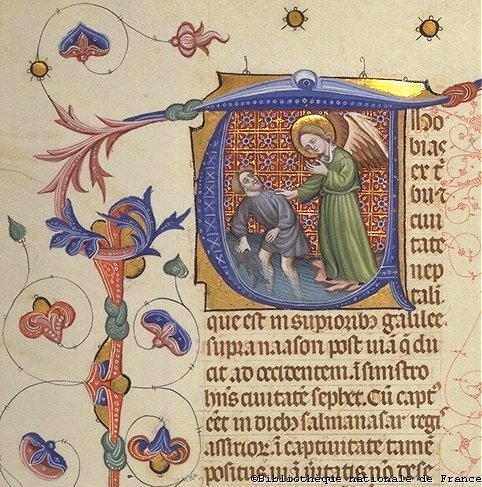 Tho
bias
ex t̄
bu ⁊
ciui
tate
nep
tali
que est in suṗiorib galilee
supra naason post uiā q̄ du
cit ad occidentem. ī sinistro
hn̄s ciuitatē sephet. Cū capt'
eēt in dieb salmanasar regis
assirior̄ ī captiuitate tamē
positus uiā ūitatis nō dese
©Bibliothèque nationale de France